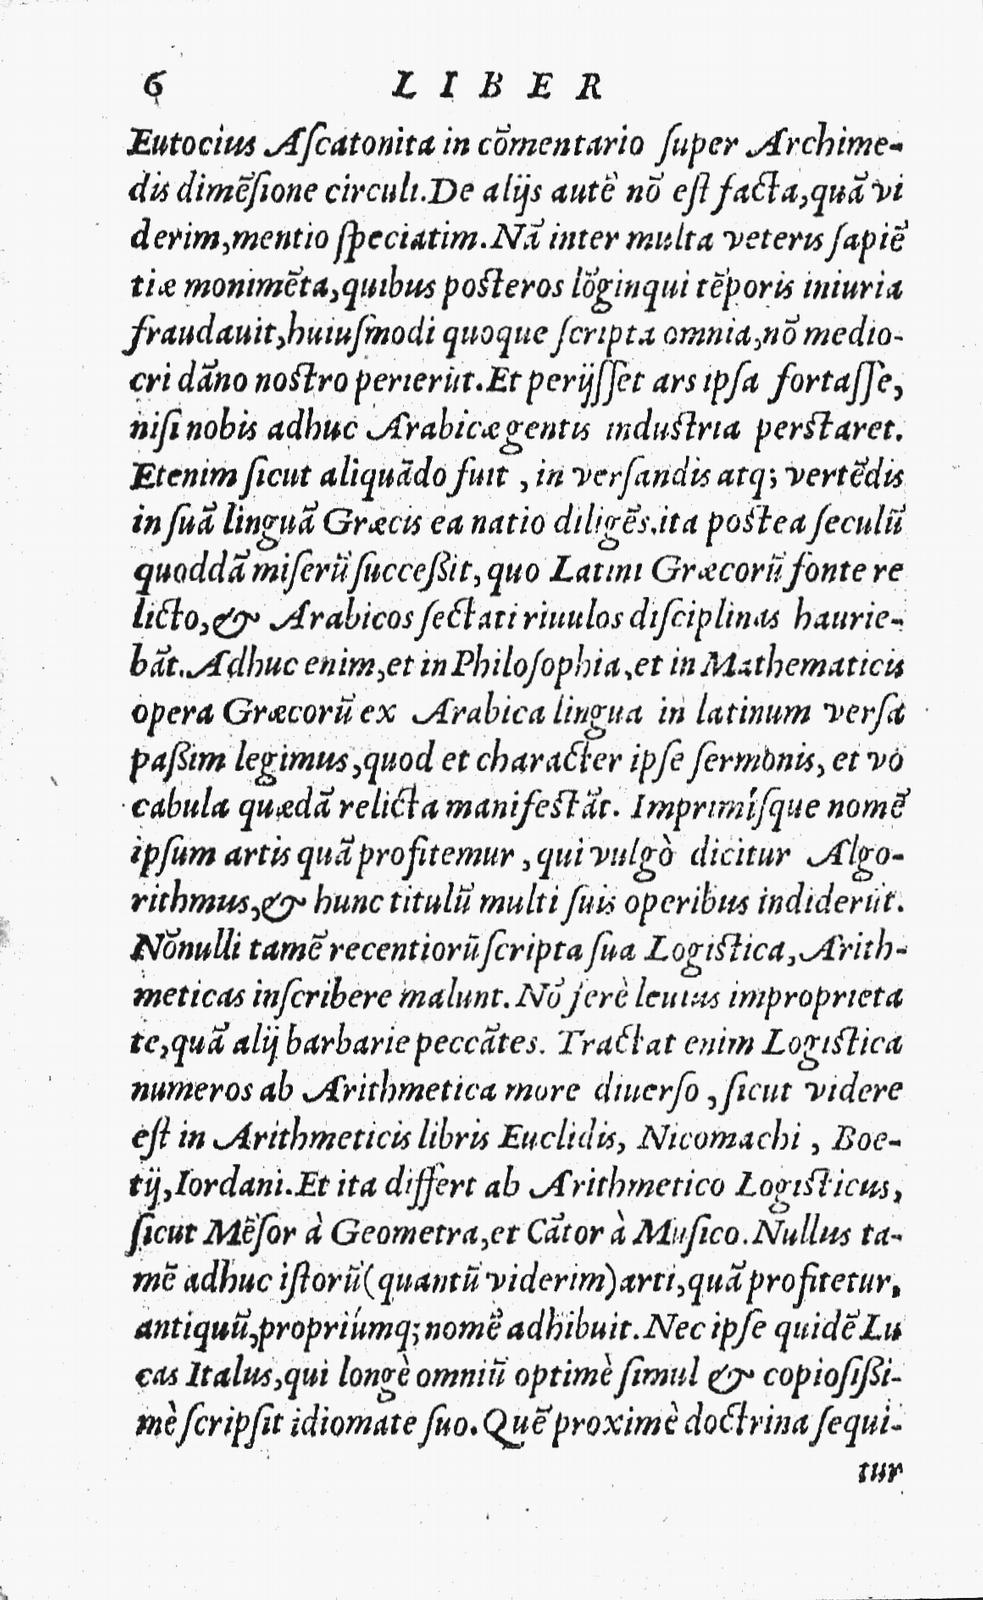 6 LIBER
Eutocius Aſcatonita in cõmentario ſuper Archime-
dis dimẽſione circuli. De alijs autẽ nõ eſt facta, quã vi
derim, mentio ſpeciatim. Nã inter multa veteris ſapiẽ
tiæ monimẽta, quibus poſteros lõginqui tẽporis iniuria
fraudauit, huiuſmodi quoque ſcripta omnia, nõ medio-
cri dãno noſtro perierũt. Et perijſſet ars ipſa fortaſſe,
niſi nobis adhuc Arabicæ gentis induſtria perſtaret.
Etenim ſicut aliquãdo fuit, in verſandis atq; vertẽdis
in ſuã linguã Græcis ea natio diligẽs, ita poſtea ſeculũ
quoddã miſerũ ſucceßit, quo Latini Græcorũ fonte re
licto, & Arabicos ſectati riuulos diſciplinas haurie-
bãt. Adhuc enim, et in Philoſophia, et in Mathematicis
opera Græcorũ ex Arabica lingua in latinum verſa
paßim legimus, quod et character ipſe ſermonis, et vo
cabula quædã relicta manifeſtãt. Imprimíſque nomẽ
ipſum artis quã profitemur, qui vulgò dicitur Algo-
rithmus, & hunc titulũ multi ſuis operibus indiderũt.
Nõnulli tamẽ recentiorũ ſcripta ſua Logiſtica, Arith-
meticas inſcribere malunt. Nõ ferè leuius improprieta
te, quã alij barbarie peccãtes. Tractat enim Logiſtica
numeros ab Arithmetica more diuerſo, ſicut videre
eſt in Arithmeticis libris Euclidis, Nicomachi, Boe-
tij, Iordani. Et ita differt ab Arithmetico Logiſticus,
ſicut Mẽſor à Geometra, et Cãtor à Muſico. Nullus ta-
mẽ adhuc iſtorũ (quantũ viderim) arti, quã profitetur,
antiquũ, propriúmq; nomẽ adhibuit. Nec ipſe quidẽ Lu
cas Italus, qui longè omniũ optimè ſimul & copioſißi-
mè ſcripſit idiomate ſuo. Quẽ proximè doctrina ſequi-
tur